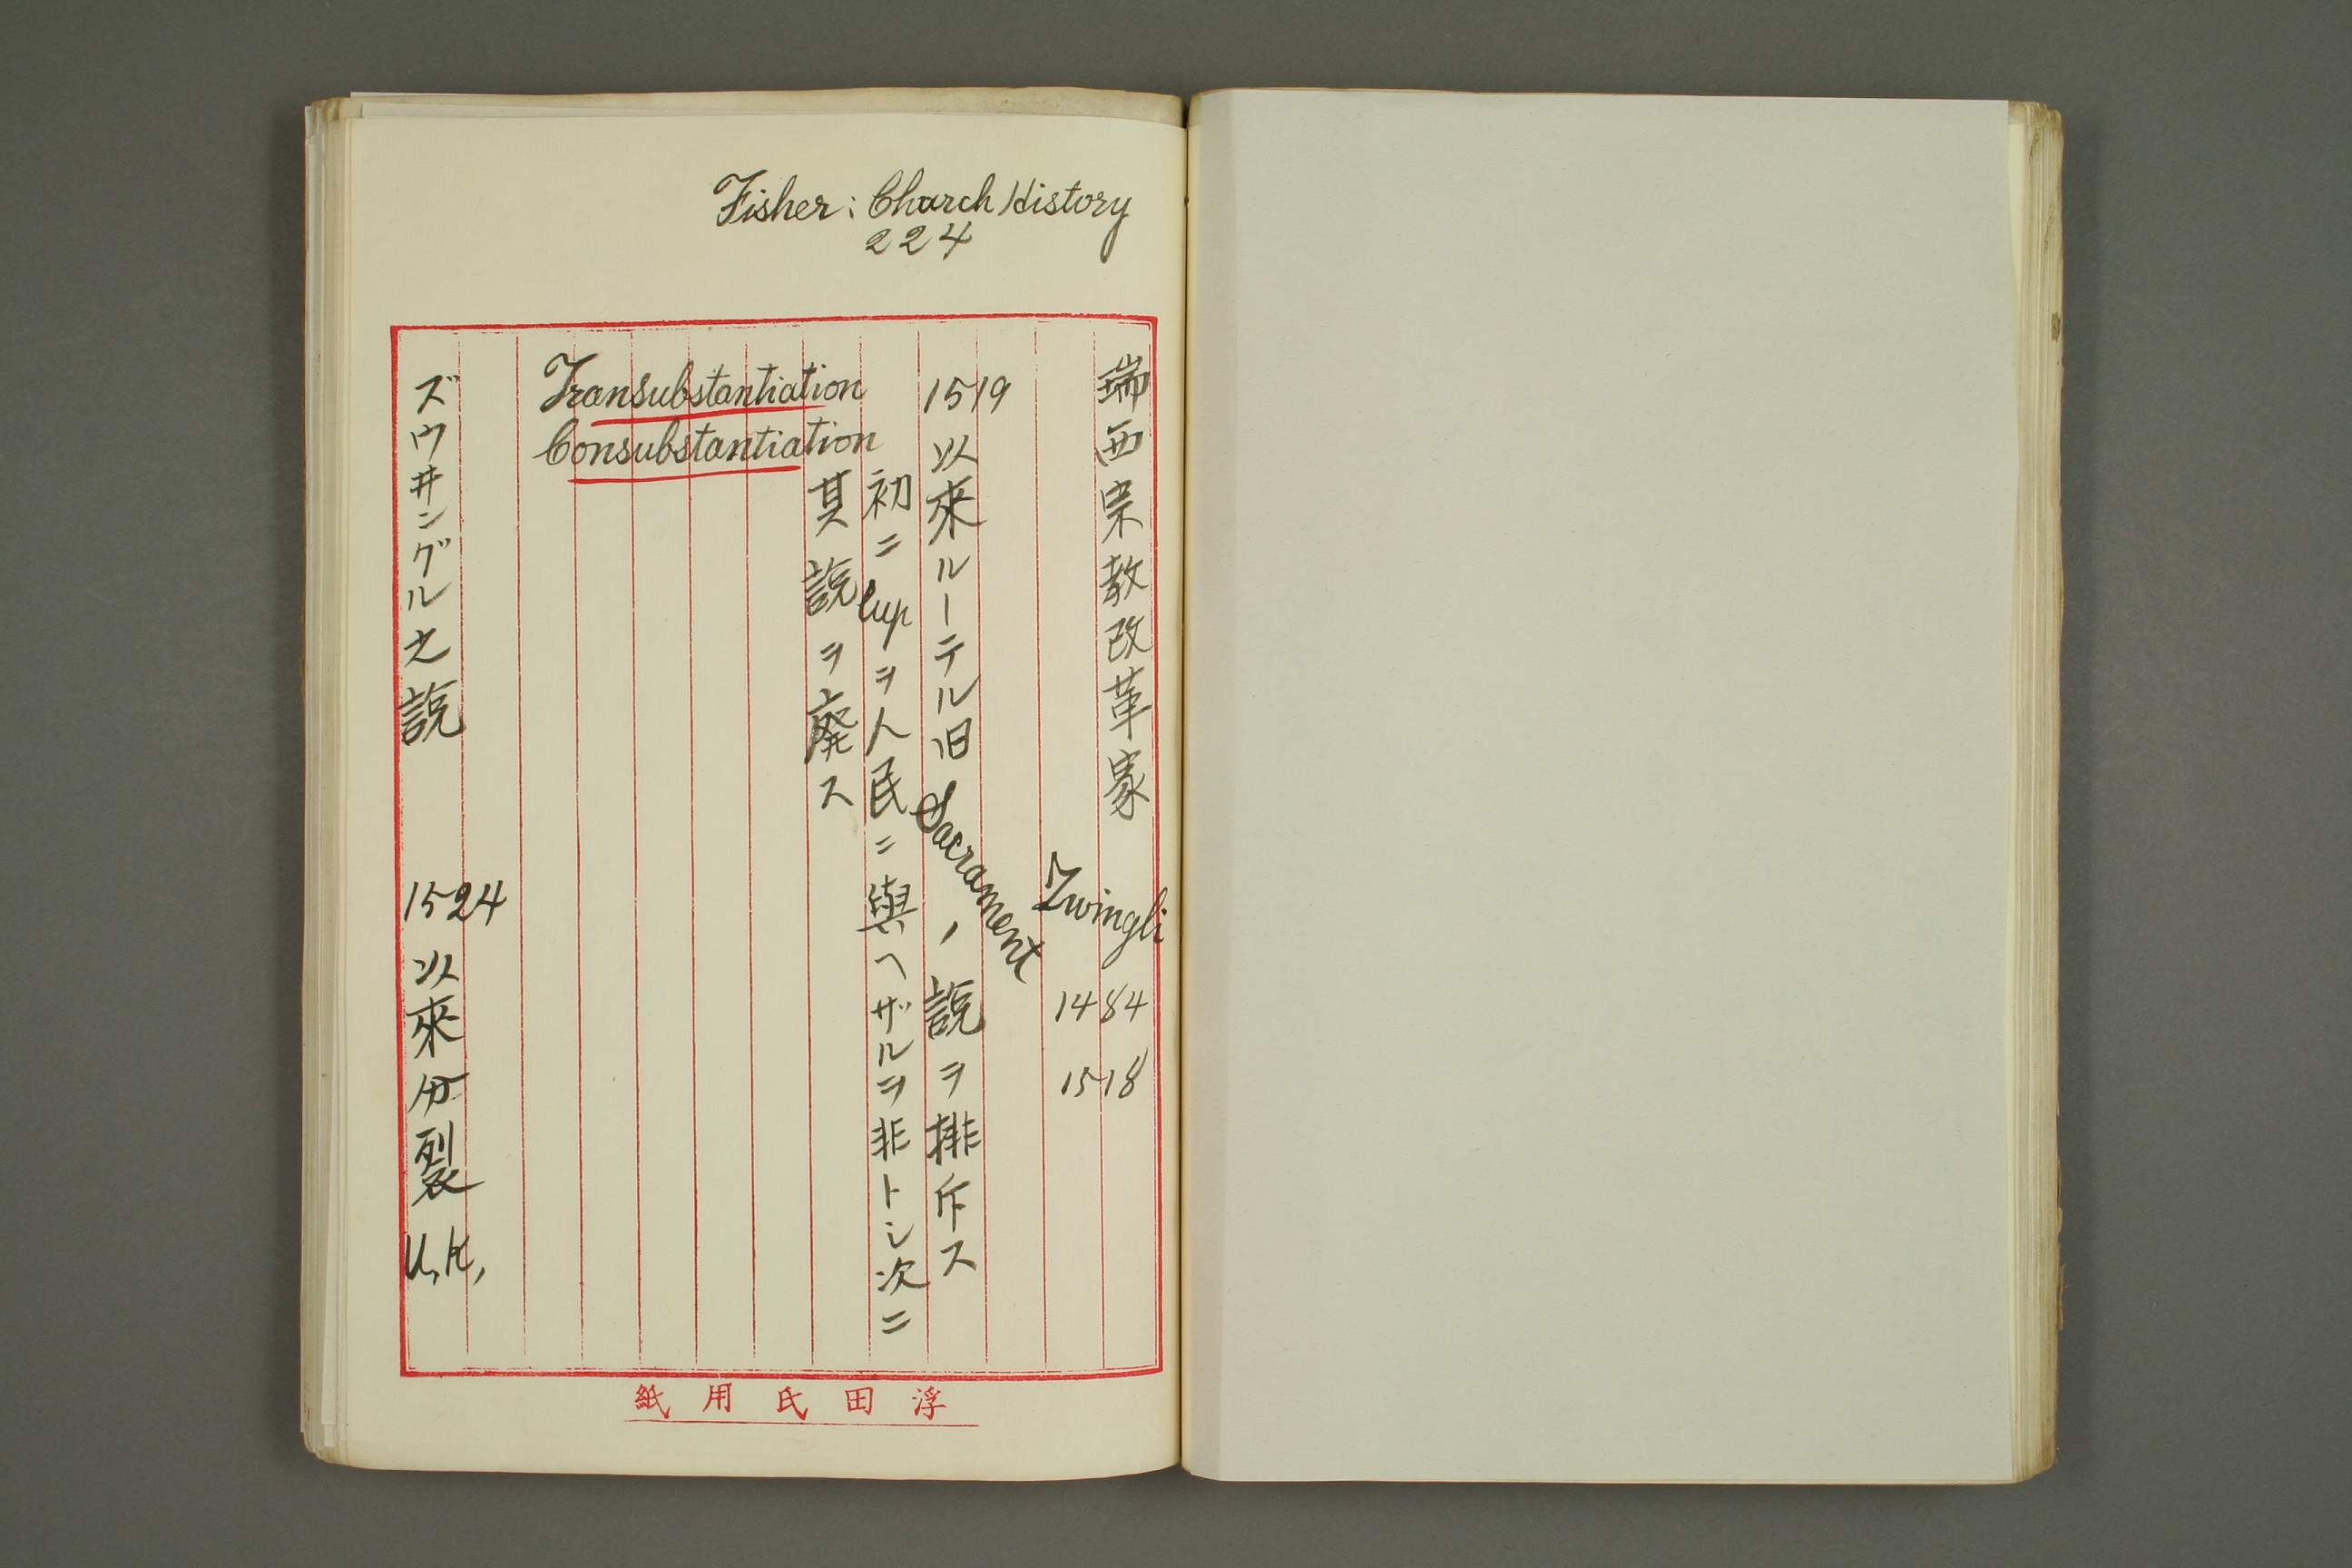 Fisher: Church History
224
瑞西宗教改革家 Zwingli 1484 1518
1519以來ルーテル旧Sacramentノ説ヲ排斥ス
初ニCupヲ人民ニ與ヘザルヲ非トシ次ニ
其説ヲ廃ス
Transubstantiation
Consubstantiation
ズウ井ングル之説 1524以來分裂
浮田氏用紙